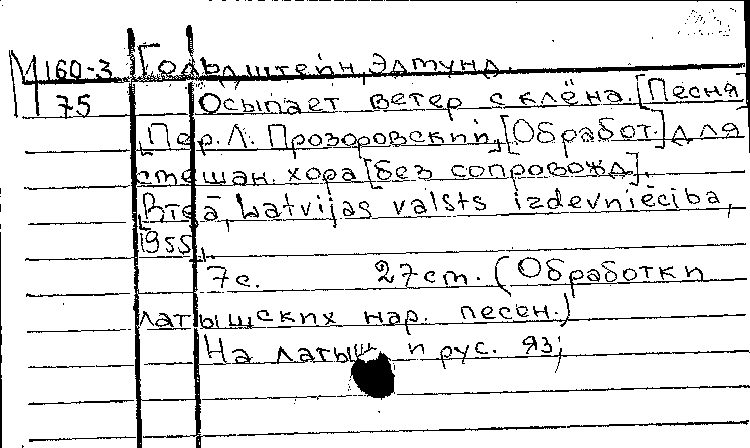 М160-3 Гольдштейн, Элмунд.
75 Осыпает ветер с клёна. [Песня]
Пер. Л. Прозоровский, [Обработ.] для
смешан. хора [без сопровожд].
Latvijas valsts izdevniēciba,
1955.
7с. 27 cm. (Обработки
латышских нар. песен.)
На латыш и рус. яз;